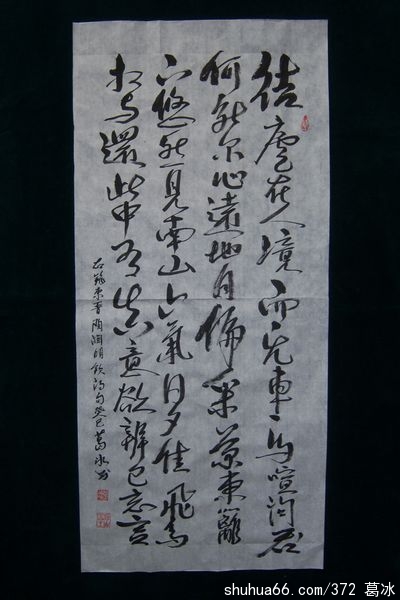 結廬在人境而无車馬喧问君
何能尔心遠地自偏采菊東籬
下悠然見南山々氣日夕佳飛鳥
相与還此中有真意欲辨已忘言
右録東晋陶渊明飲酒句癸巳葛冰书
shuhua66.com/372 葛冰